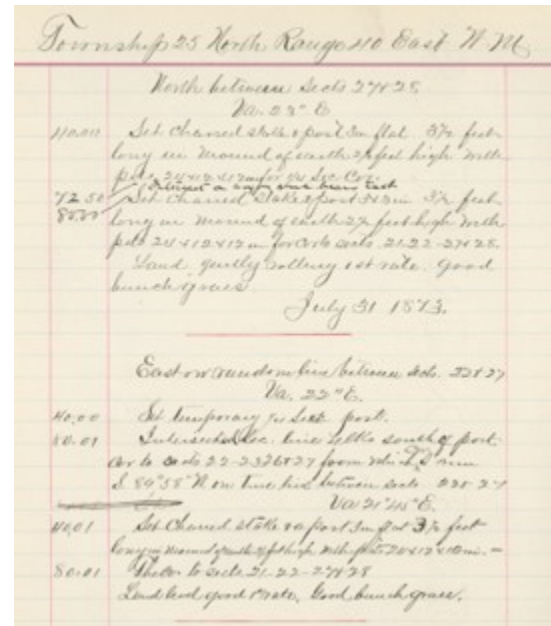 Township 25 North Range 40 East W. M.
North between Sects 27 & 28
Va. 22° E
40.00 Set charred stake & post 3 in flat 3½ feet
long in mound of earth 2½ feet high with
pits 24 x 12 x 12 in for ¼ Sec Cor.
72.50
80.00 Set charred stake & post 3 in 3½ feet
long in mound of earth 2½ feet high with
pits 24 x 12 x 12 in for cor to sects 21-22-27 & 28.
Land gently rolling 1st rate. Good
bunch grass.
July 31 1873.
East on random line between Sects. 22 & 27
Va. 22° E.
40.00 Set temporary ¼ Sect post.
80.01 Intersected Sec. line lks south of post
cor to sects 22-23 26 & 27 from which I run
S. 89°58' W on true line between sects 22 & 27
Va 21°45' E.
40.01 Set charred stake & post 3 in flat 3½ feet
long in mound of earth high with pits 24 x 12 x 10 in. —
80.01 The cor to sects. 21-22-27 & 28
Land level good 1st rate. Good bunch grass.